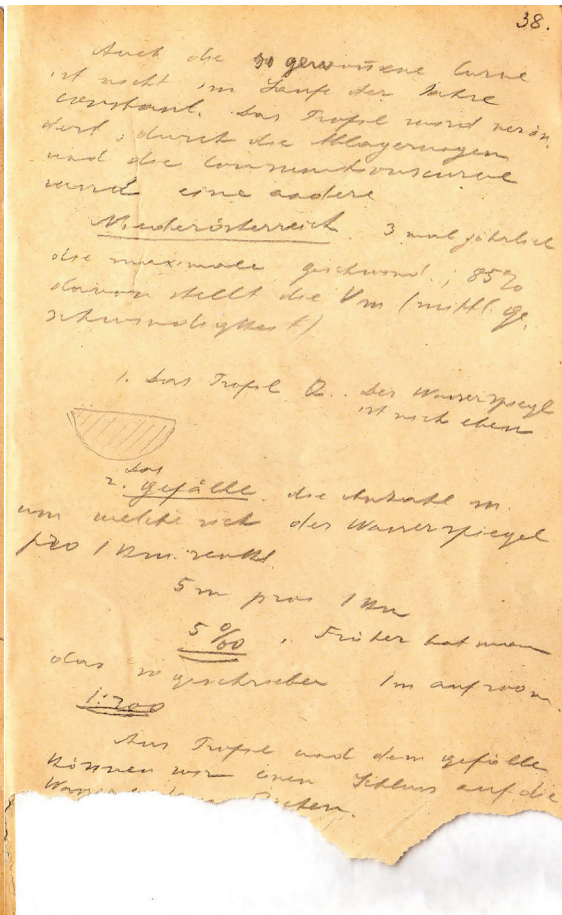 38.
Auch die so gewonnene Curve
ist nicht im Laufe der Jahre
constant. Das Profil wird verän
dert, durch die Ablagerungen
und die Consumtionscurve
wird eine andere
Niederösterreich 3 mal jährlich
die maximale geschwind.; 85%
davon stellt die Vm (mittl. ge
schwindigkeit)
1. Das Profil Q. Der Wasserspiegl
ist nich eben
2. Das gefälle. die Anzahl m.
um welche sich der Wasserspiegel
pro 1 Km. senkt.
5 m pros 1 Km
5 ‰. Früher hat man
das so geschrieben 1m auf 200m.
1:200
Aus Profil und dem gefälle
können wir einen Schluss auf die